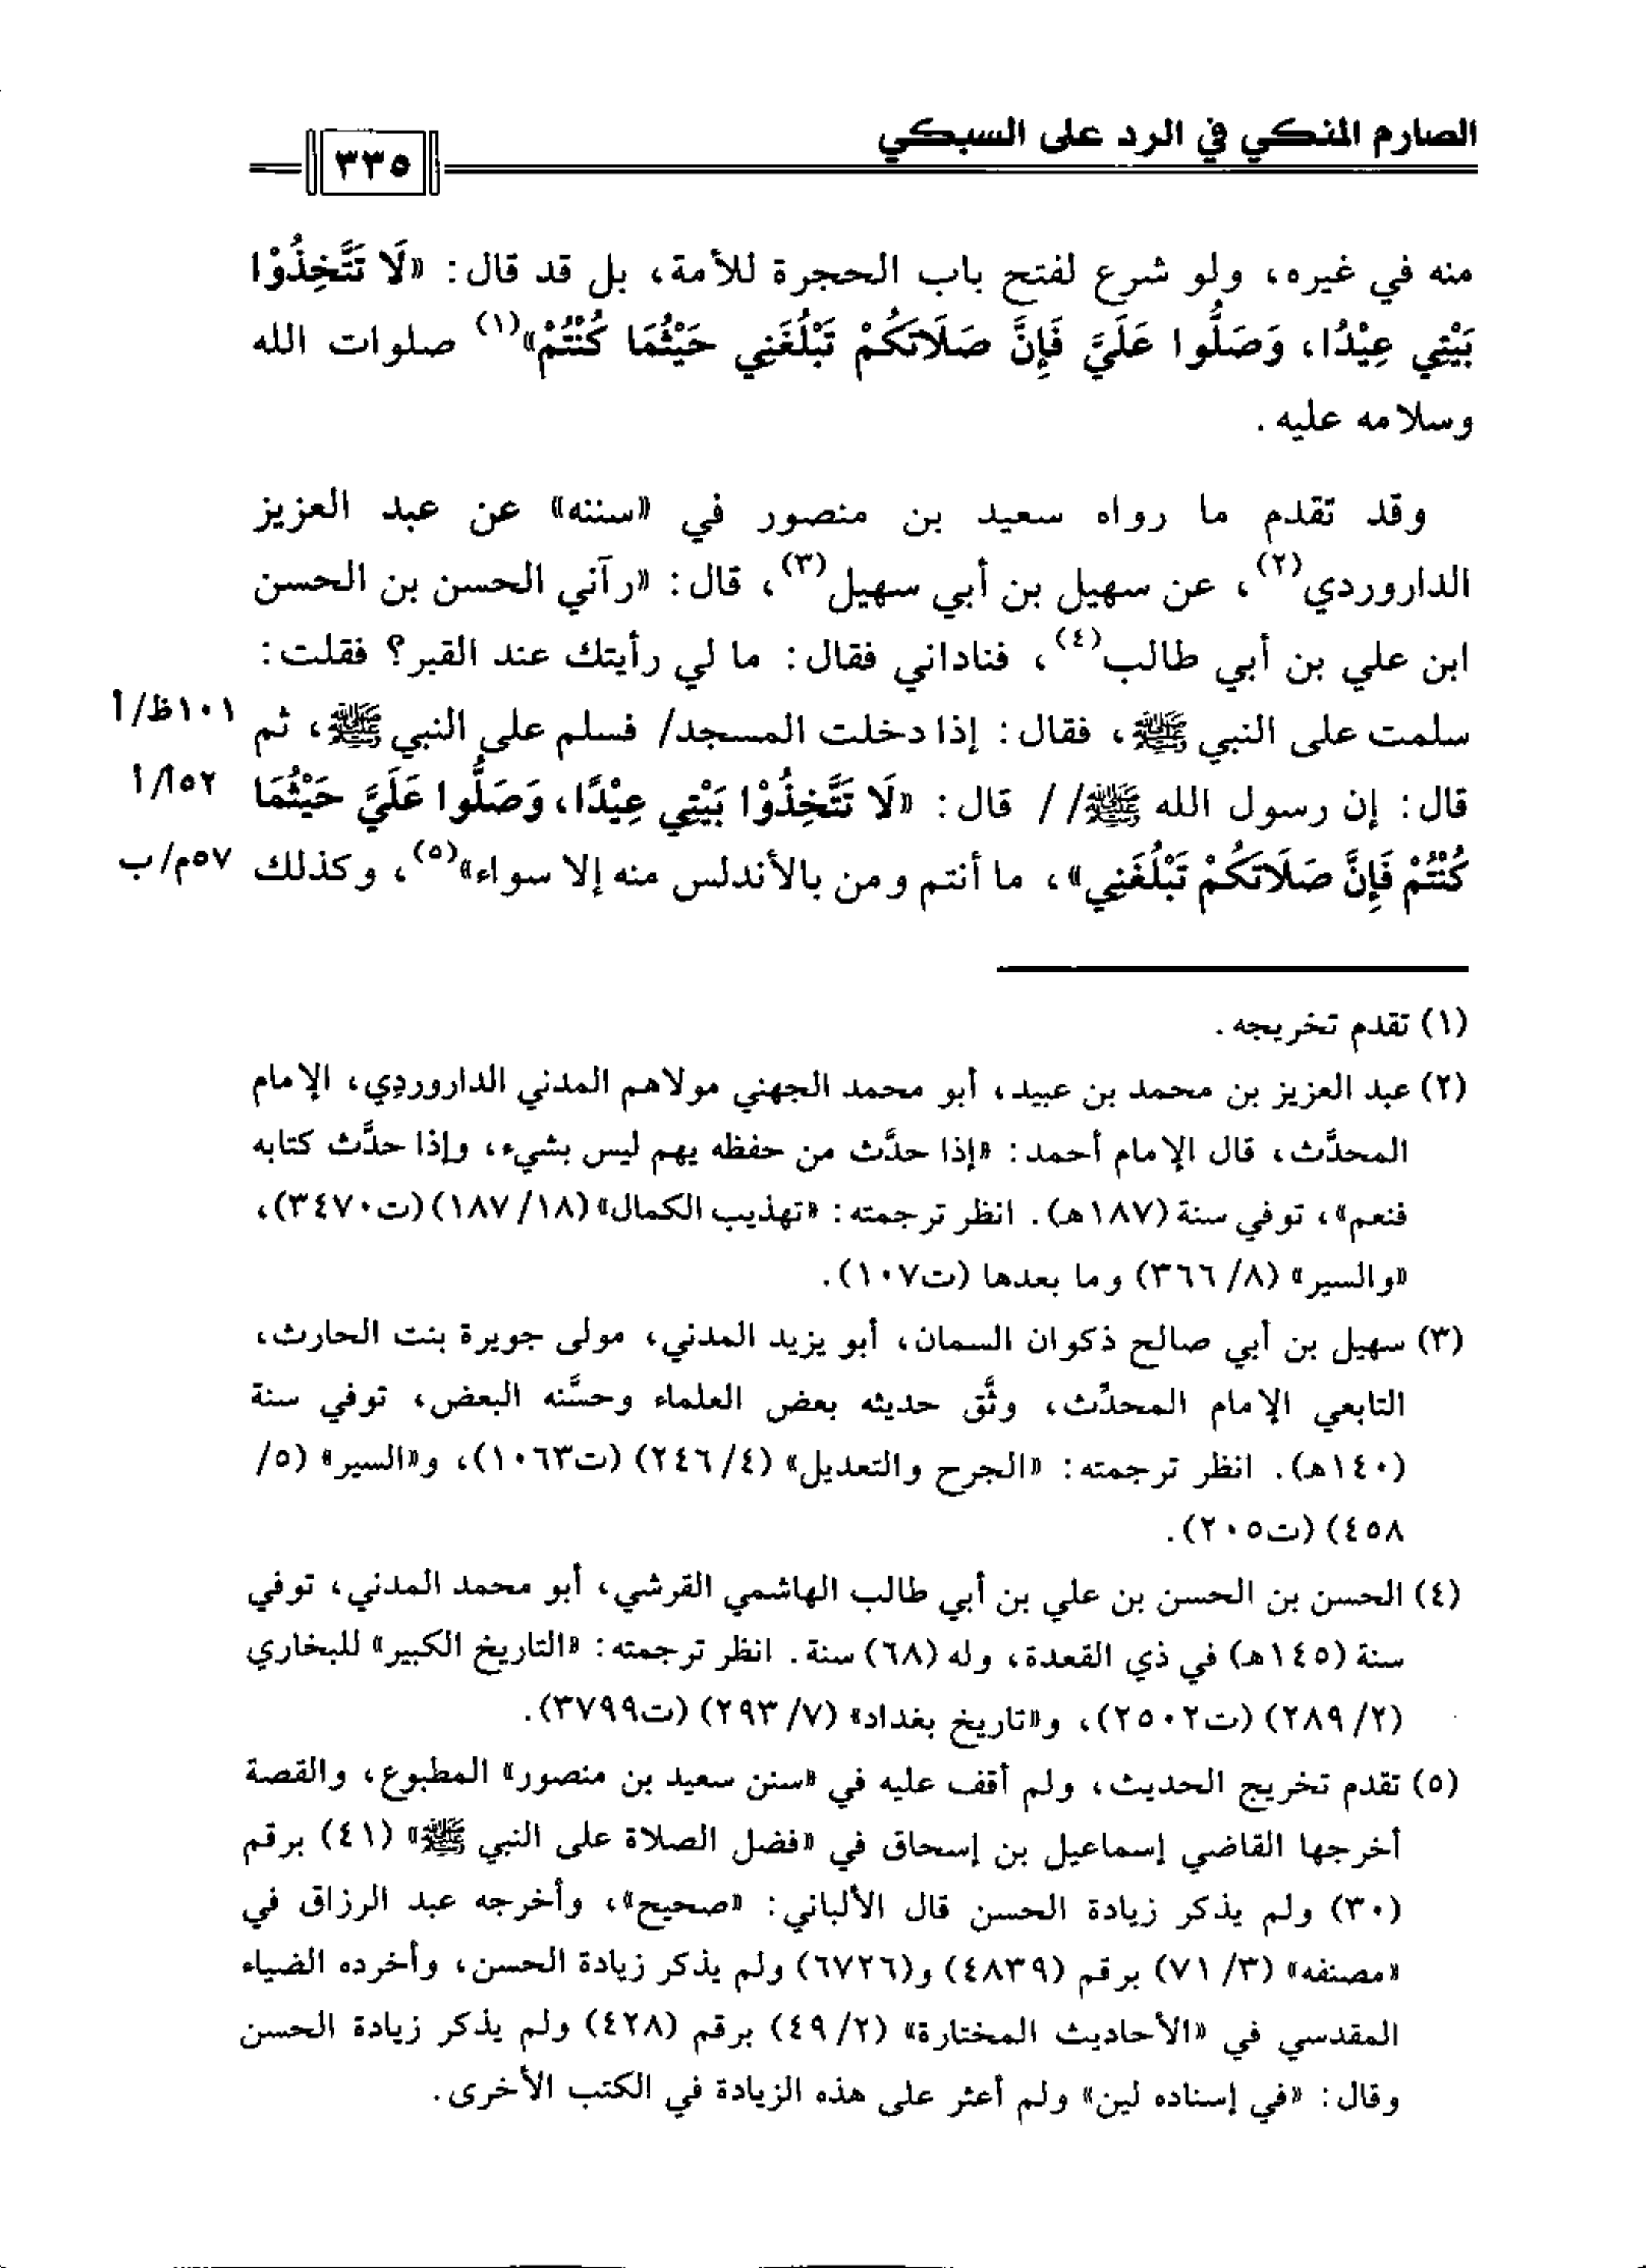 الصارم المنكي في الرد على السبكي
٣٣٥
منه في غيره، ولو شرع لفتح باب الحجرة للأمة، بل قد قال: «لَا تَتَّخِذُوْا
بَيْتِي عِيْدًا، وَصَلُّوا عَلَيَّ فَإِنَّ صَلَاتَكُمْ تَبْلُغَنِي حَيْثُمَا كُنْتُمْ»(١) صلوات الله
وسلامه عليه.
وقد تقدم ما رواه سعيد بن منصور في «سننه» عن عبد العزيز
الداروردي(٢)، عن سهيل بن أبي سهيل(٣)، قال: «رآني الحسن بن الحسن
ابن علي بن أبي طالب(٤)، فناداني فقال: ما لي رأيتك عند القبر؟ فقلت:
سلمت على النبي ﷺ، فقال: إذا دخلت المسجد/ فسلم على النبي ﷺ، ثم
١٠١ظ/أ
قال: إن رسول الله ﷺ/ / قال: «لَا تَتَّخِذُوْا بَيْتِي عِيْدًا، وَصَلُّوا عَلَيَّ حَيْثُمَا
٥٢أ/أ
كُنْتُمْ فَإِنَّ صَلَاتَكُمْ تَبْلُغَنِي»، ما أنتم ومن بالأندلس منه إلا سواء»(٥)، وكذلك
٥٧م/ب
(١) تقدم تخريجه.
(٢) عبد العزيز بن محمد بن عبيد، أبو محمد الجهني مولاهم المدني الداروردِي، الإمام
المحدَّث، قال الإمام أحمد: «إذا حدَّث من حفظه يهم ليس بشيء، وإذا حدَّث كتابه
فنعم»، توفي سنة (١٨٧هـ). انظر ترجمته: «تهذيب الكمال» (١٨/ ١٨٧) (ت٣٤٧٠)،
«والسير» (٨/ ٣٦٦) وما بعدها (ت١٠٧).
(٣) سهيل بن أبي صالح ذكوان السمان، أبو يزيد المدني، مولى جويرة بنت الحارث،
التابعي الإمام المحدَّث، وثَّق حديثه بعض العلماء وحسَّنه البعض، توفي سنة
(١٤٠هـ). انظر ترجمته: «الجرح والتعديل» (٤/ ٢٤٦) (ت١٠٦٣)، و«السير» (٥/
٤٥٨) (ت٢٠٥).
(٤) الحسن بن الحسن بن علي بن أبي طالب الهاشمي القرشي، أبو محمد المدني، توفي
سنة (١٤٥هـ) في ذي القعدة، وله (٦٨) سنة. انظر ترجمته: «التاريخ الكبير» للبخاري
(٢/ ٢٨٩) (ت٢٥٠٢)، و«تاريخ بغداد» (٧/ ٢٩٣) (ت٣٧٩٩).
(٥) تقدم تخريج الحديث، ولم أقف عليه في «سنن سعيد بن منصور» المطبوع، والقصة
أخرجها القاضي إسماعيل بن إسحاق في «فضل الصلاة على النبي ﷺ» (٤١) برقم
(٣٠) ولم يذكر زيادة الحسن قال الألباني: «صحيح»، وأخرجه عبد الرزاق في
«مصنفه» (٣/ ٧١) برقم (٤٨٣٩) و(٦٧٢٦) ولم يذكر زيادة الحسن، وأخرده الضياء
المقدسي في «الأحاديث المختارة» (٢/ ٤٩) برقم (٤٢٨) ولم يذكر زيادة الحسن
وقال: «في إسناده لين» ولم أعثر على هذه الزيادة في الكتب الأخرى.